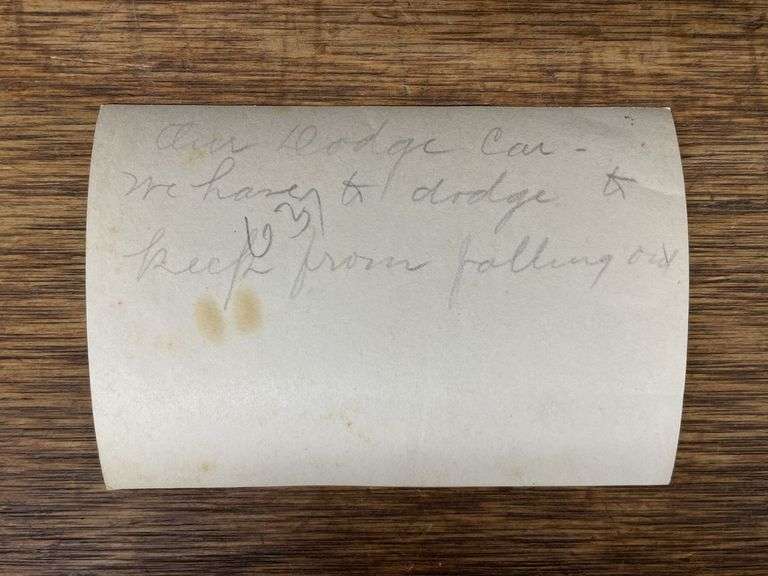 Our Dodge Car -
We have to dodge to
keep from falling out